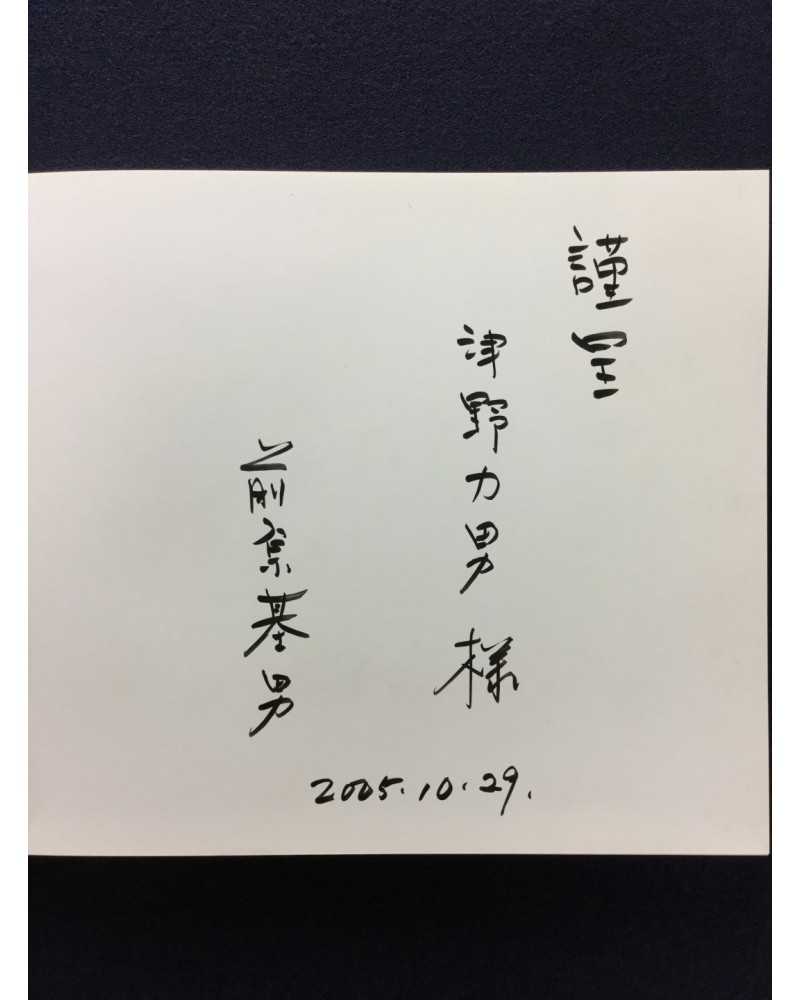 謹呈
津野力男様
前 基男
2005.10.29.